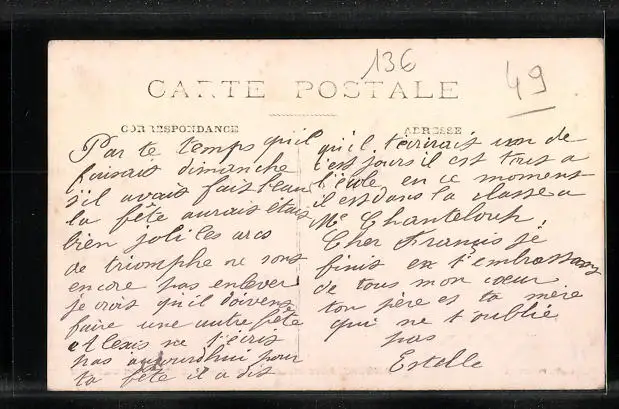 136
49
CARTE POSTALE
CORRESPONDANCE
Par te temps qu'il
faisait dimanche
s'il avait fait beau
la fête aurait étais
bien joli les arcs
de triomphe ne sont
encore pas enlever
je crois qu'il doivent
faire une autre fête
Alexis ne t'écris
pas aujourdhui pour
ta fête il a dis
ADRESSE
qu'il t'écrirais un de
c'est jours il est tous a
l'écle en ce moment
il est dans la classe a
Mr Chanteloup,
Cher Francis je
finis en t'embrassans
de tous mon cœur
ton père et ta mère
qui ne t'oublie
pas
Estelle